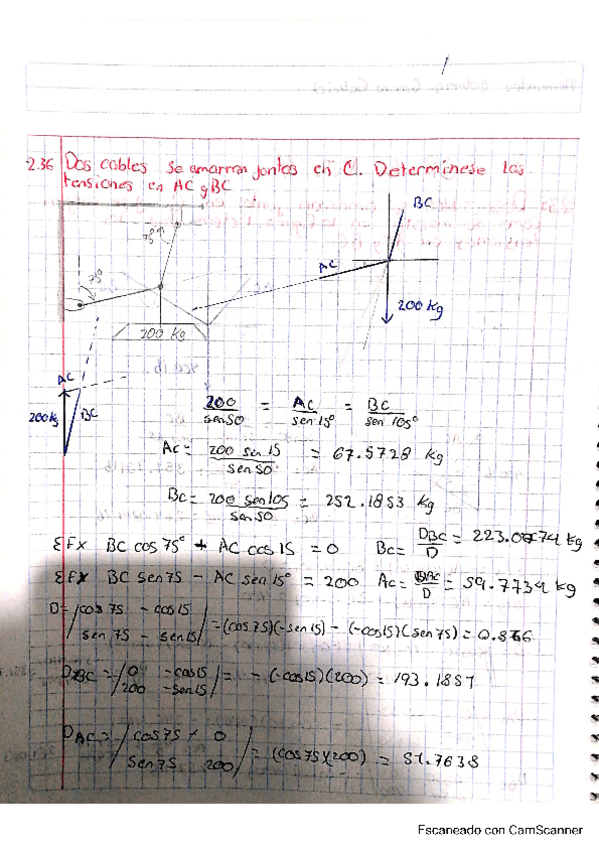 2.36 Dos cables se amarran juntos en C. Determínese las
tensiones en AC y BC
BC
75°
AC
75°
200 Kg
200 Kg
AC
200 kg
BC
200/sen50 = AC/sen 15° = BC/sen 105°
Ac = 200 sen 15/sen 50 = 67.5728 kg
Bc = 200 sen 105/sen 50 = 252.1853 kg
ΣFx BC cos 75° + AC cos 15 = 0 Bc = DBC/D = 223.0774 kg
ΣFx BC sen 75 - AC sen 15° = 200 Ac = DBC/D = 59.7734 kg
D = /cos 75 - cos 15
sen 75 - sen 15/ = (cos 75)(-sen 15) - (-cos 15)(sen 75) = 0.866
DBC = /0 -cos 15
200 -sen 15/ = - (-cos 15)(200) = 193.1857
DAC = /cos 75 0
sen 75 200/ = (cos 75 x 200) = 51.7638
Escaneado con CamScanner